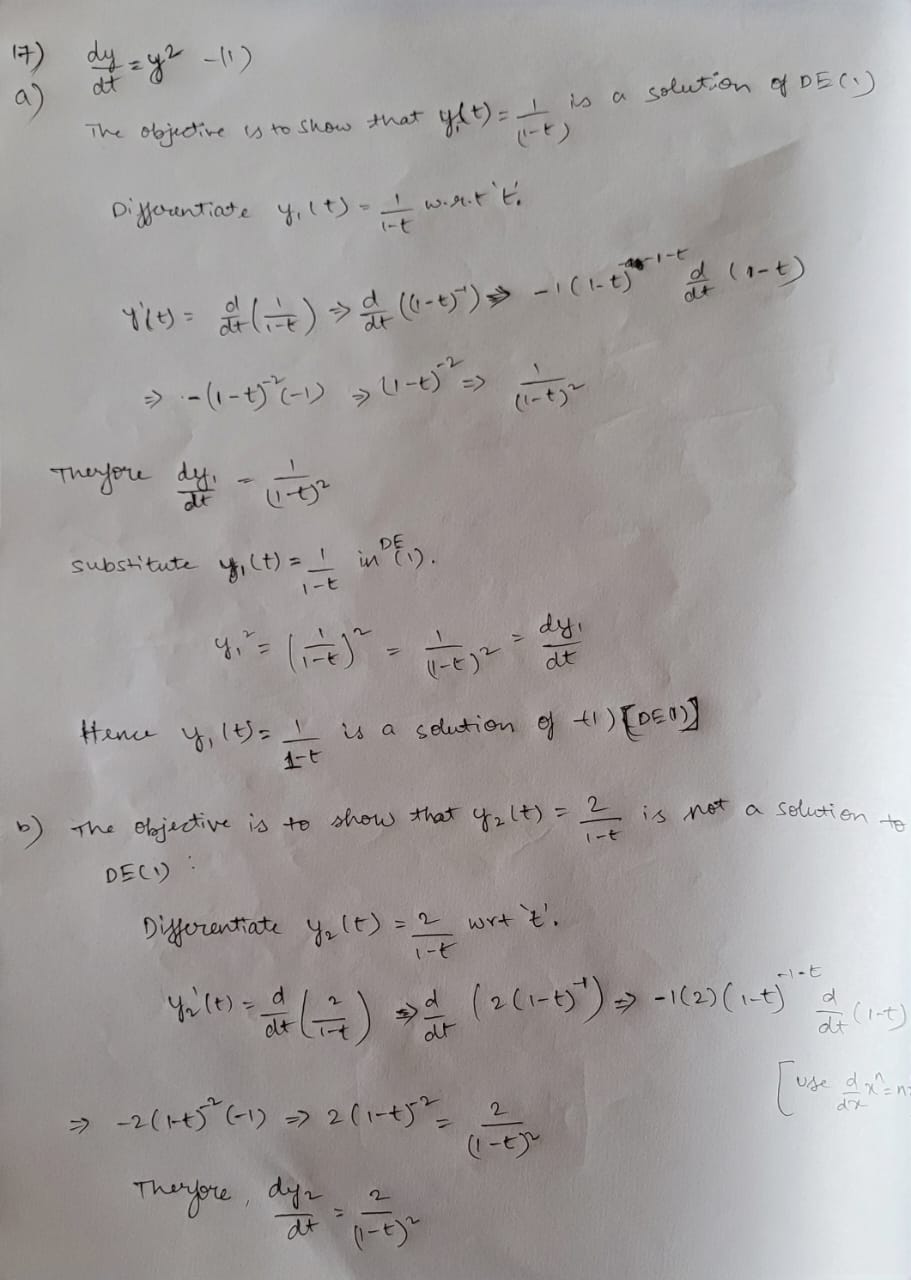 17) dy/dt = y² -(1)
a) The objective is to show that y₁(t) = 1/(1-t) is a solution of DE(1)
Differentiate y₁(t) = 1/1-t w.r.t 't'.
y'(t) = d/dt (1/1-t) ⇒ d/dt ((1-t)⁻¹) ⇒ -1(1-t)⁻¹⁻ᵗ d/dt (1-t)
⇒ -(1-t)⁻²(-1) ⇒ (1-t)⁻² ⇒ 1/(1-t)²
Therefore dy₁/dt = 1/(1-t)²
substitute y₁(t) = 1/1-t in DE(1).
y₁² = (1/1-t)² = 1/(1-t)² = dy₁/dt
Hence y₁(t) = 1/1-t is a solution of (1) [DE(1)]
b) The objective is to show that y₂(t) = 2/1-t is not a solution to
DE(1) :
Differentiate y₂(t) = 2/1-t wrt 't'.
y₂'(t) = d/dt (2/1-t) ⇒ d/dt (2(1-t)⁻¹) ⇒ -1(2)(1-t)⁻¹⁻ᵗ d/dt (1-t)
[use d/dx xⁿ = n
⇒ -2(1-t)⁻²(-1) ⇒ 2(1-t)⁻² = 2/(1-t)²
Therefore, dy₂/dt = 2/(1-t)²